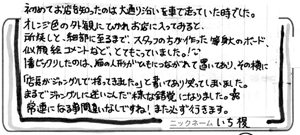 初めてお店を知ったのは大通り沿いを車で走っていた時でした。
オレンジ色の外観にひかれお店に入ってみると、
所狭しと、細部に至るまで、スタッフの方が作った等身大のボード、
似顔絵、コメントなど、とてもっていました!
1番ビックリしたのは、猿の人形がひもにつながれて置いてあり、その横に
「店長がジャングルで捕ってきました。」と書いてあり笑ってしまいました。
まるでジャングルに迷いこんだ様な錯覚になりました。
常連になる事間違いなしですね!また必ず行きます。
ニックネーム いち 様